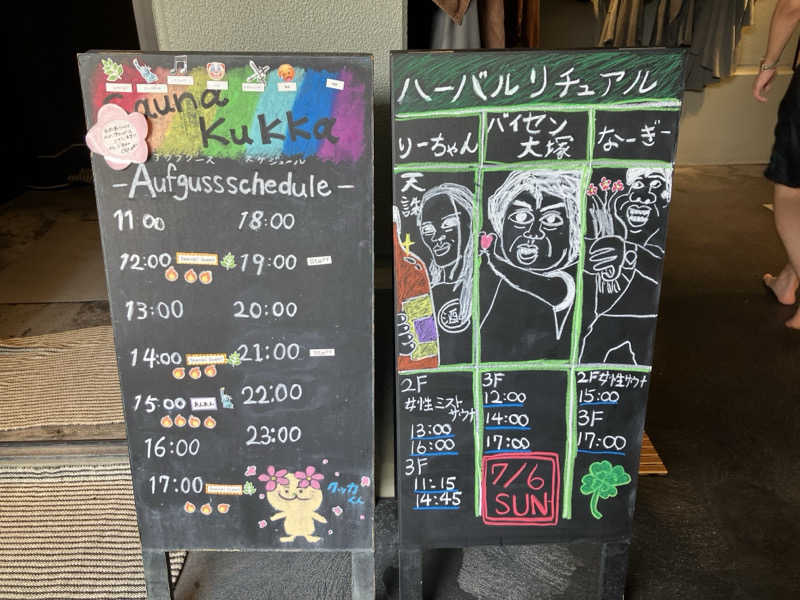 Sauna
Kukka
アウフグース スケジュール
-Aufgussschedule-
11:00 18:00
12:00 Special Guest 19:00 STAFF
13:00 20:00
14:00 Special Guest 21:00 STAFF
15:00 22:00
16:00 23:00
17:00
クッカ
くん
ハーバルリチュアル
りーちゃん
天誅
酒
2F
女性ミスト
サウナ
13:00
16:00
3F
11:15
14:45
バイセン
大塚
3F
12:00
14:00
17:00
7/6
SUN
なーぎー
2F女性サウナ
15:00
3F
17:00